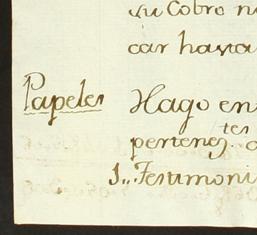 su Cobro n
car hasta
Papeles Hago en
pertenez.tes
1,, Testimoni